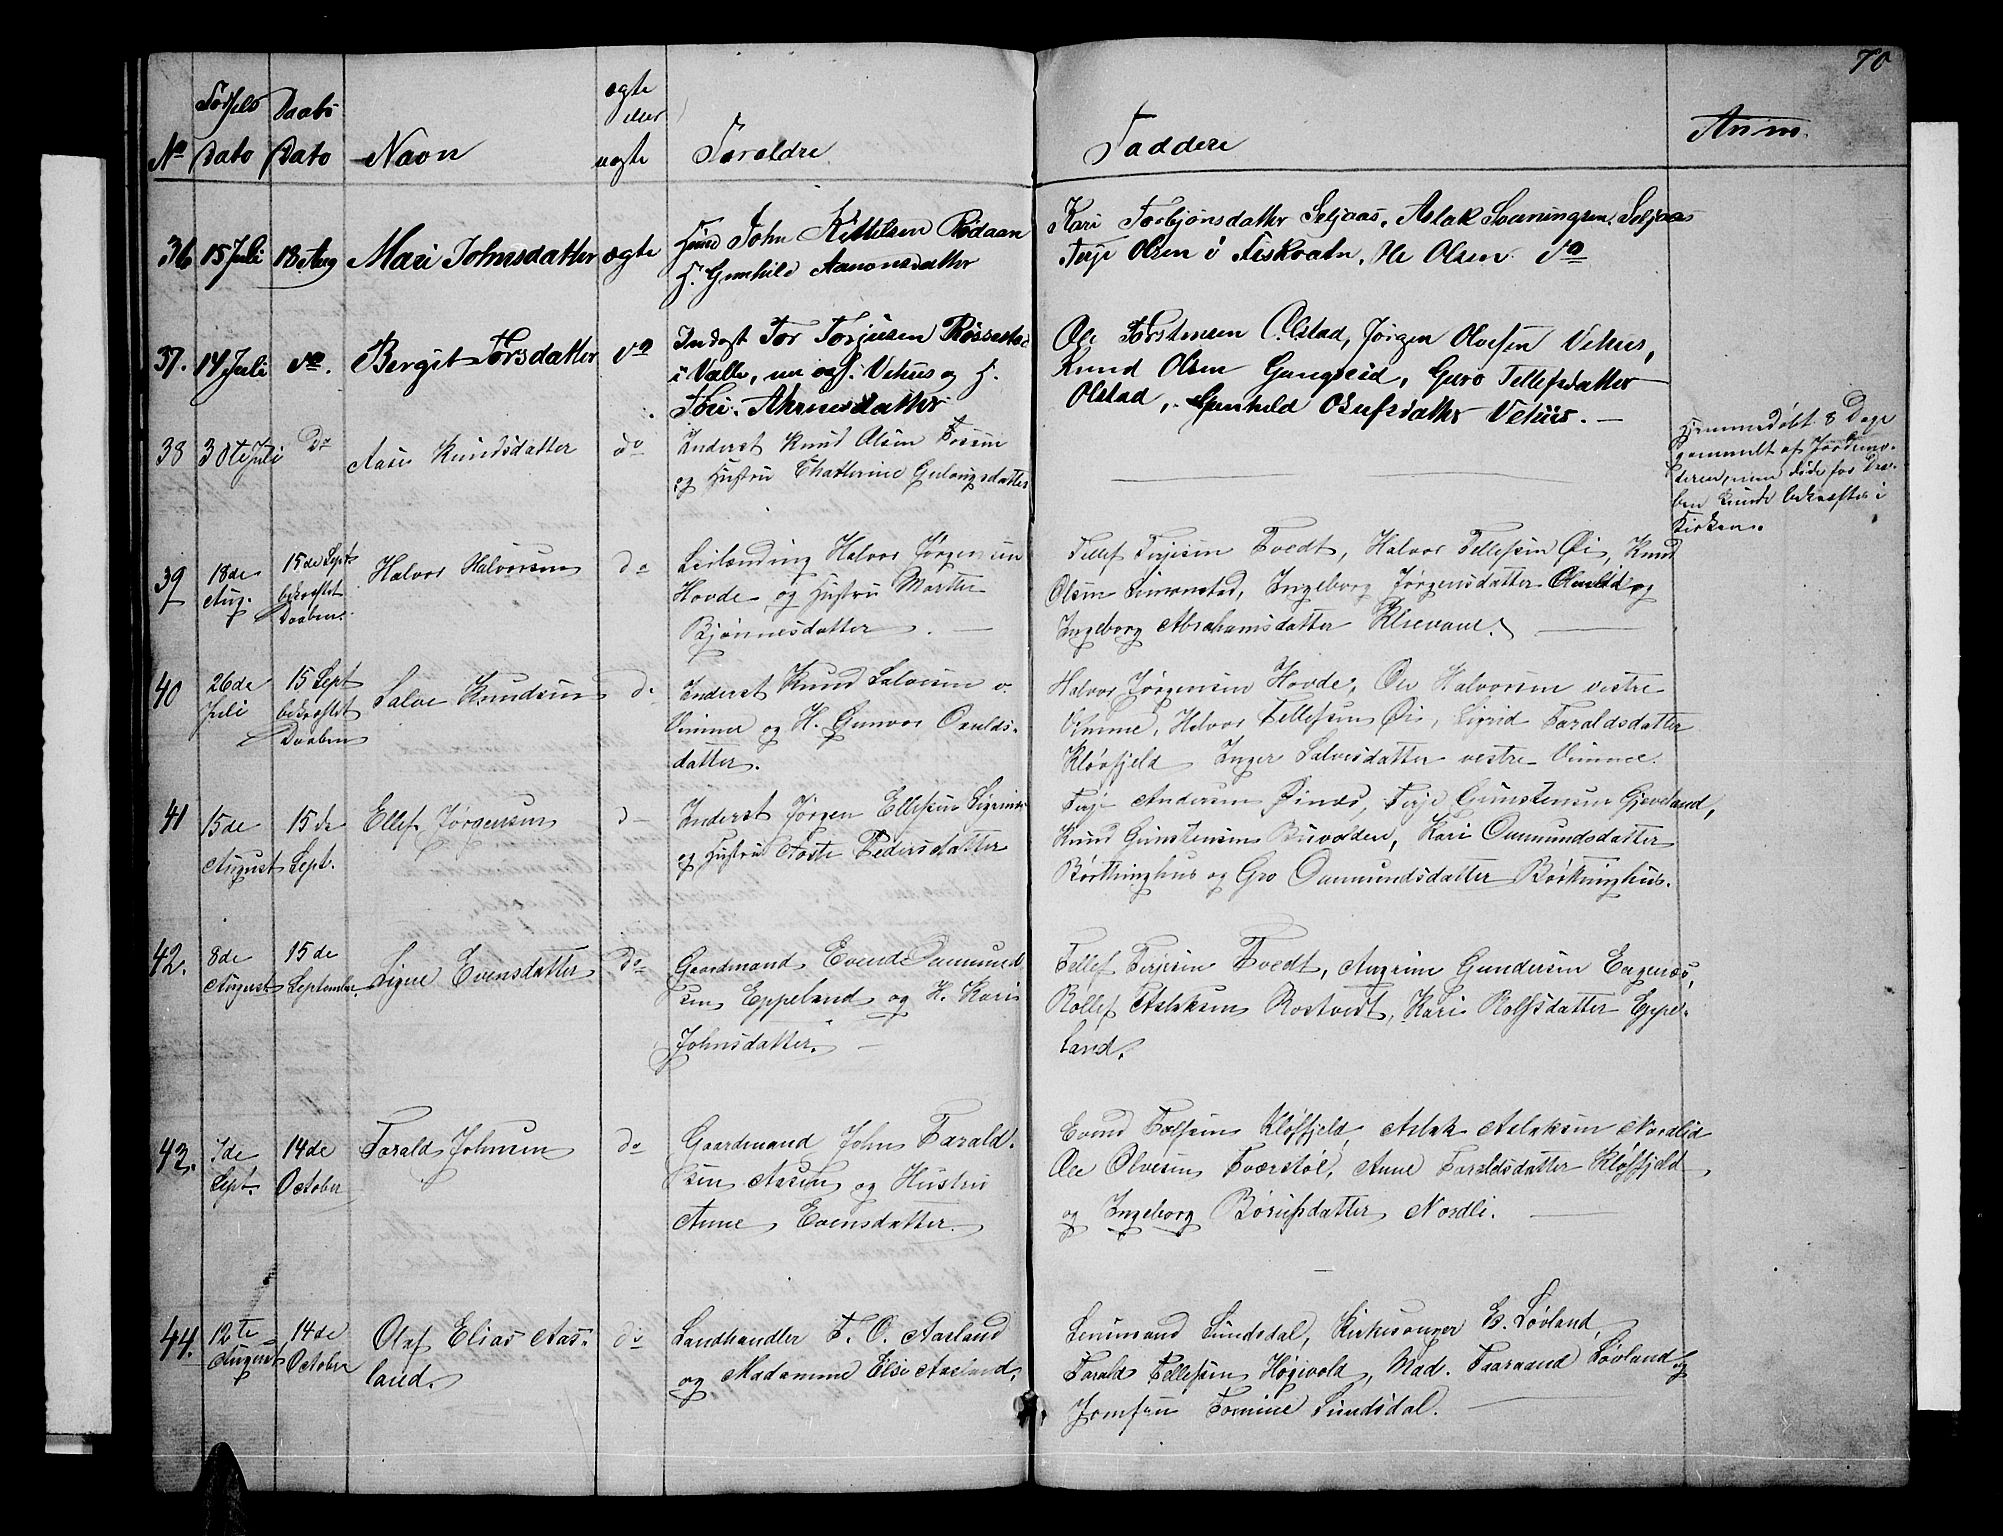 70
Fødsels Daabs ægte
eller
No Dato Dato Navn uægte Forældre Faddere Anm.
36 15 Juli 18 Aug Mari Johnsdatter ægte John Kittelsen Rødaan
H. Gunhild Aanonsdatter
Kari Torbjønsdatter Seljaas, Aslak Sveningsen Seljaas
Terje Olsen i Fiskvatn, Ole Olsen do
37. 14 Juli do. Bergit Torsdatter do Inderst Tor Torjusen Røssestad
i Valle, nu opf. Vehus og H.
Tori Aknesdatter
Ole Torstensen Olstad, Jørgen Olvesen Vehus,
Knud Olsen Gangseid, Guro Tellefsdatter
Olstad, Gunhild Osufsdatter Vehus. —
38 30te Juli Do Aase Knudsdatter do Inderst Knud Olsen Fossen
og Hustru Chatterine Gulougsdatter
Hjemmedøbt 8 Dage
gammelt af Jordemo-
deren, men døde før Daa-
ben kunde bekræftes i
Kirken.
39 18de Aug. 15de Sept bekræftet Daaben. Halvor Halvorsen do Leilænding Halvor Jørgensen
Hovde og Hustru Marthe
Bjønnesdatter. —
Tellef Terjesen Tvedt, Halvor Tellefsen Øi, Knud
Olsen Simonstad, Ingeborg Jørgensdatter og
Ingeborg Abrahamsdatter Klievane. —
40 26de Juli 15 Sept bekræftet Daaben Salve Knudsen do Inderst Knud Salvesen v.
Vimme og H. Gunvor Osulds-
datter.
Halvor Jørgensen Hovde, Ole Halvorsen vestre
Vimme, Halvor Tellefsen Øi, Sigrid Taraldsdatter
Kløvfjeld Inger Salvesdatter vestre Vimme.
41 15de August 15de Sept. Ellef Jørgensen d— Inderst Jørgen Ellefsen
og Hustru Aaste Pedersdatter
Terje Andersen Øinæs, Terje Gunstensen Gjevland,
Knud Gunstensen Buvolden, Kari Oumundsdatter
Børtninghus og Gro Oumundsdatter Børtninghus.
42. 8de August 15de September. Signe Evensdatter do Gaardmand Evend Oumund-
sen Eppeland og H. Kari
Johnsdatter. —
Tellef Terjesen Tvedt, Augrim Gundersen Engenæs,
Rollef Aslaksen Rostvedt, Kari Rolfsdatter Eppe-
land.
43. 7de Sept. 14de October Tarald Johnsen do Gaardmand John Tarald-
sen Aasen og Hustru
Anne Evensdatter.
Evend Kløffjeld, Aslak Aslaksen Nordlid
Ole Olvesen Tværstøl, Anne Taraldsdatter Kløffjeld
og Ingeborg Børufsdatter Nordli. —
44. 12te August 14de October Olaf Elias Aas- do Landhandler T. O. Aasland
land. og Madamme Elsi Aasland.
Lensmand Sundsdal, Kirkesanger E. Løvland,
Tarald Tellefsen Høgevold, Mad. Taaraand Løvland og
Jomfru Tomine Sundsdal. —